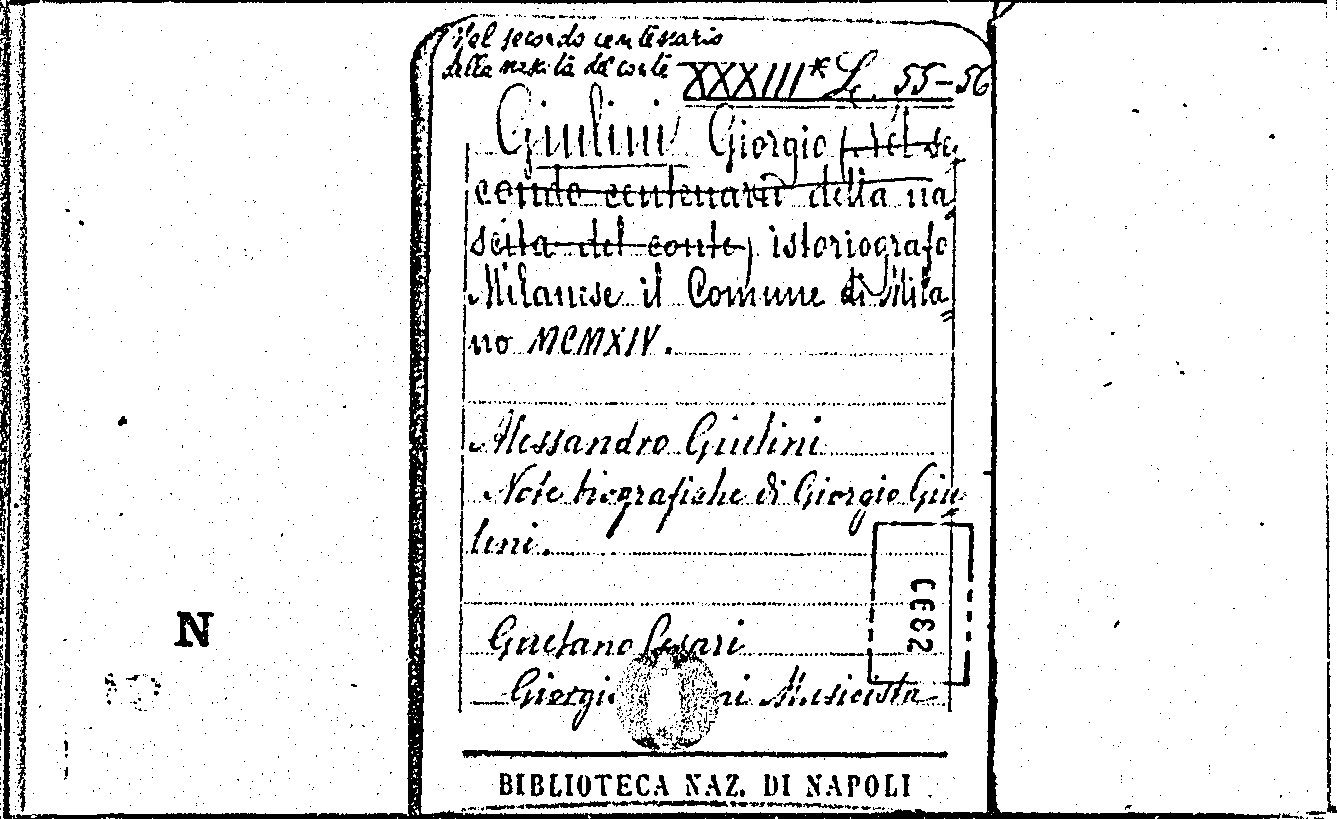 Nel secondo centenario
della nascita del conte XXXIII* L. 55-56
Giulini Giorgio (nel se
condo centenario della na
scita del conte) istoriografo
Milanese il Comune di Mila
no MCMXIV.
Alessandro Giulini
Note biografiche di Giorgio Giu
lini.
Gaetano Cesari
Giorgio Musicista
0332
N
BIBLIOTECA NAZ. DI NAPOLI